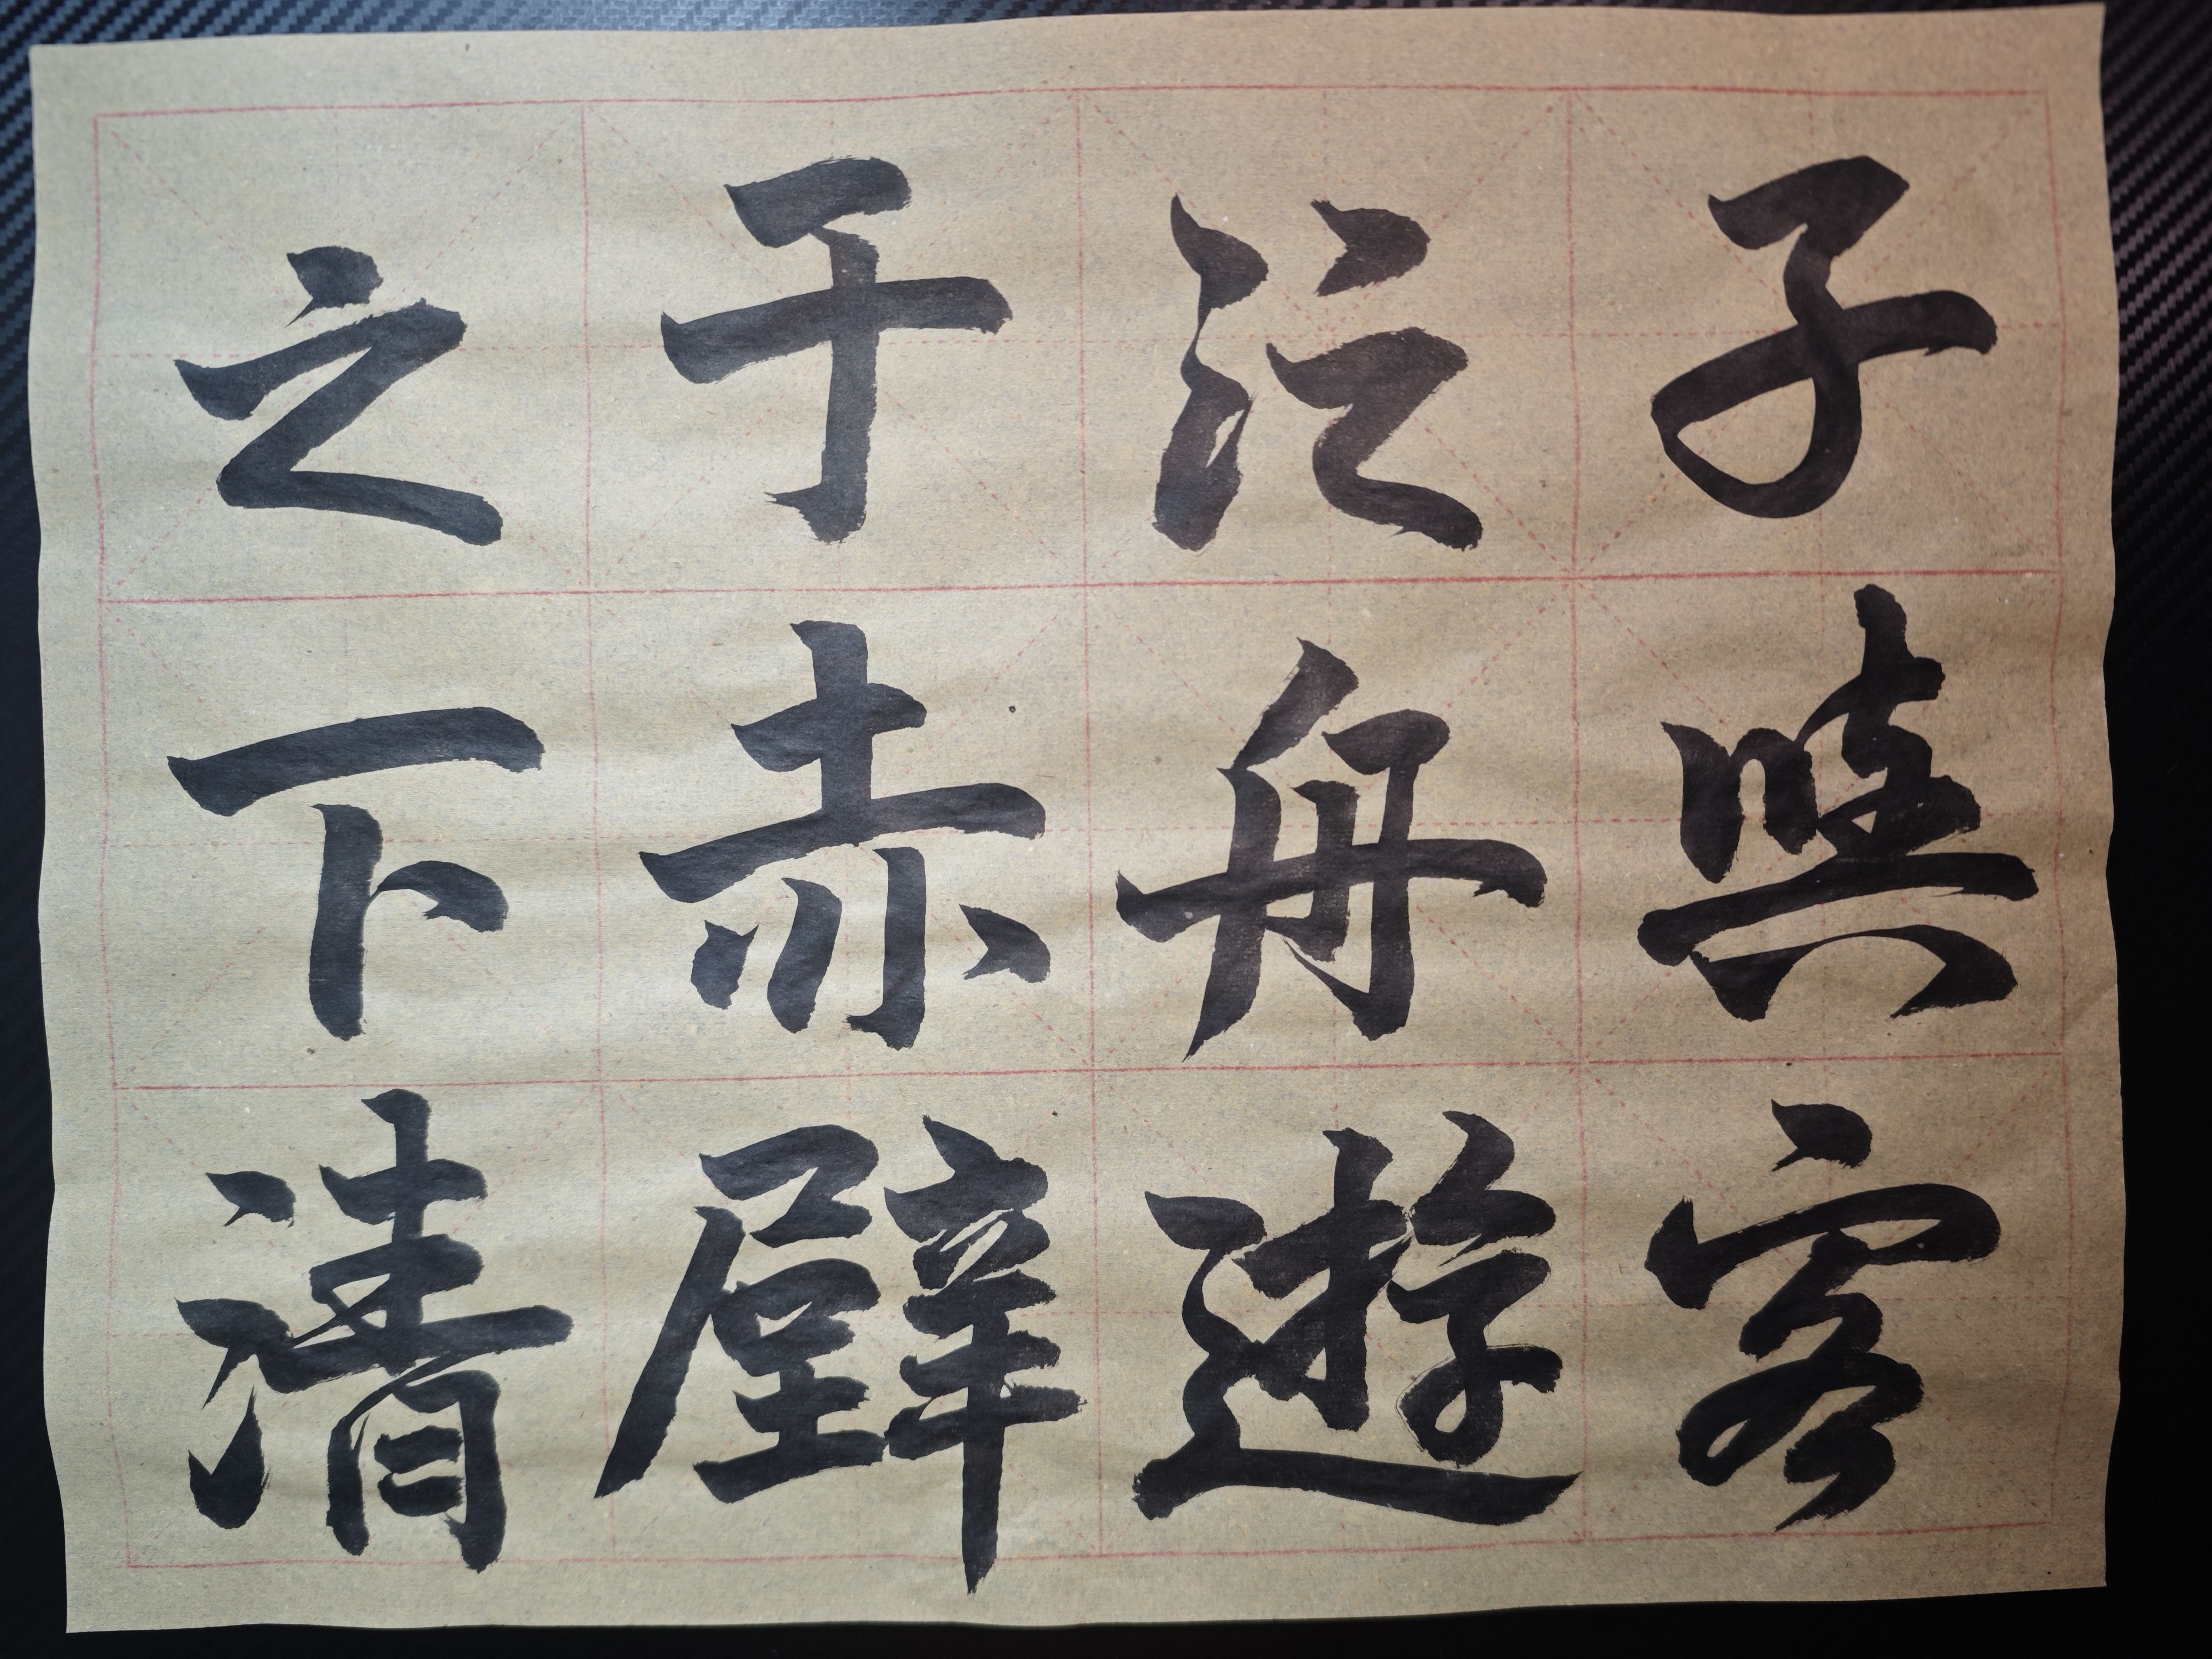 子與客
泛舟遊
于赤壁
之下清